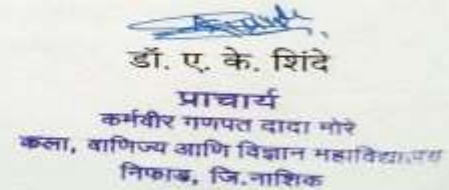 डॉ. ए. के. शिंदे
प्राचार्य
कर्मवीर गणपत दादा मोरे
कला, वाणिज्य आणि विज्ञान महाविद्यालय
निफाड, जि.नाशिक